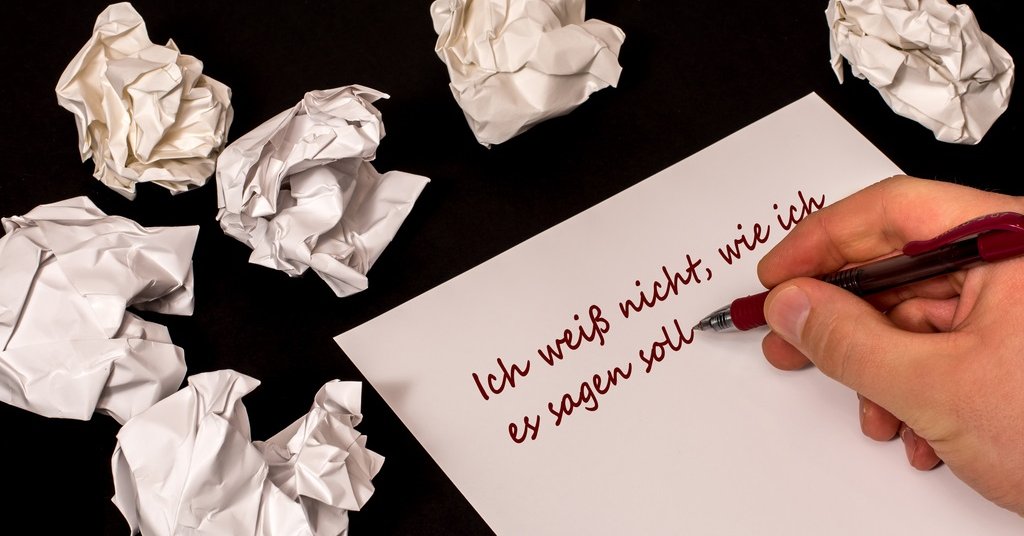 Ich weiß nicht, wie ich
es sagen soll